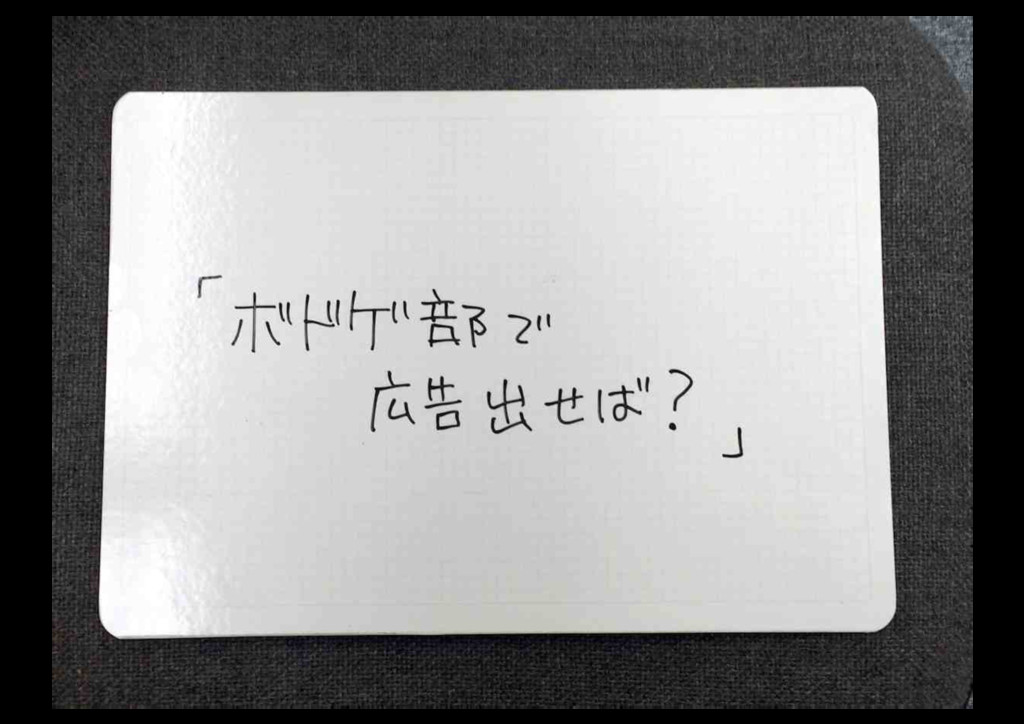 「ボドゲ部で
広告出せば?」